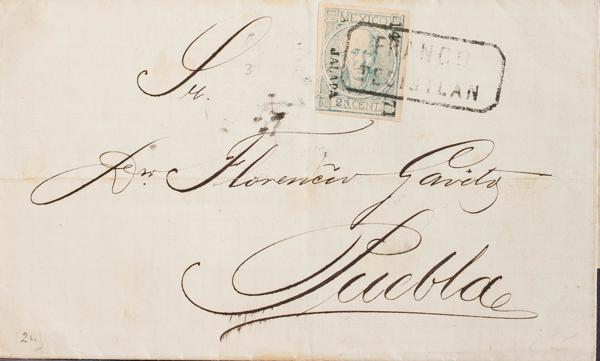 MEXICO
JALAPA
25 CENT
FRANCO
Sr.
Dn. Florencio Gavito
Puebla